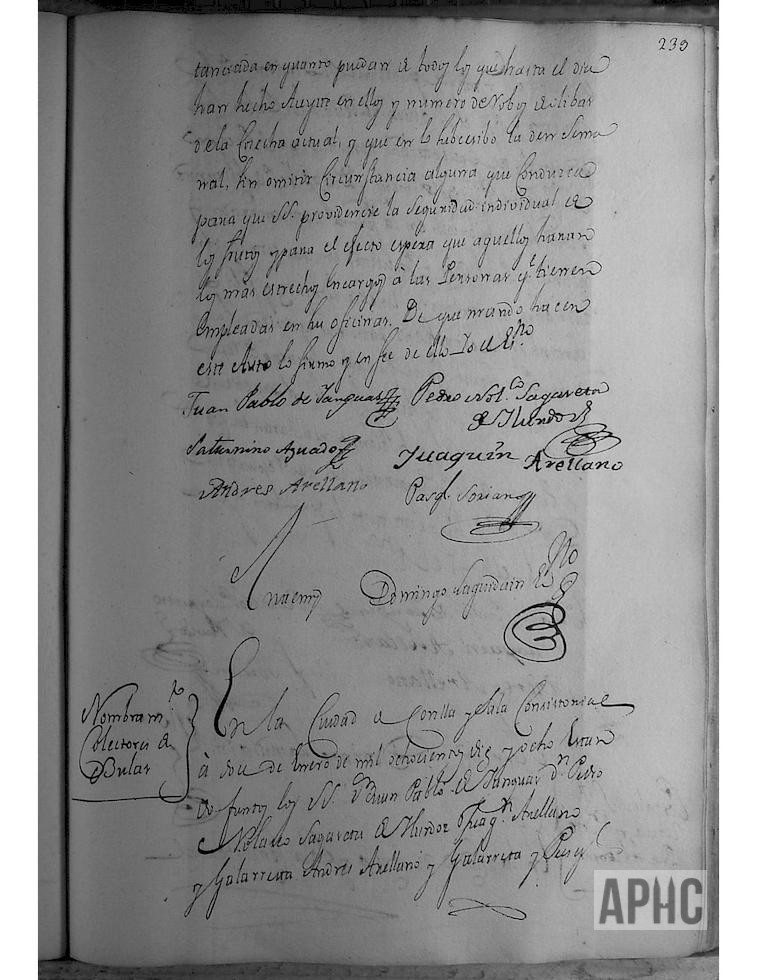 239
tanciada en quanto puedan de todos los que hasta el dia
han hecho Aceyte en ellos y numero de Robos de olibas
de la Cosecha actual, y que en lo subcesibo la den Sema
nal, sin omitir Circunstancia alguna que Conduzca
para que SS. providencie la Seguridad individual de
los frutos y para el efecto espera que aquellos haran
los mas estrechos encargos à las Personas q.e tienen
empleadas en su oficinas. De que mando hacer
este Auto lo firmo y en fee de ello Yo el Ess.no
Juan Pablo de Tanguas Pedro Nol.co Sagaseta
de Ylurdoz
Saturnino Aguado Juaquin Arellano
Andres Arellano Pasq.l Soriano
Antemi Domingo Sagardain Ess.no
Nombram.to
Colectores de
Bulas
En la Ciudad de Corella y Sala Consistorial
à doce de Enero de mil ochocientos diez y ocho Estan
do juntos los SS. D.n Juan Pablo de Tanguas D.n Pedro
Nolasco Sagaseta de Ylurdoz Juaq.n Arellano
y Galarreta Andres Arellano y Galarreta y